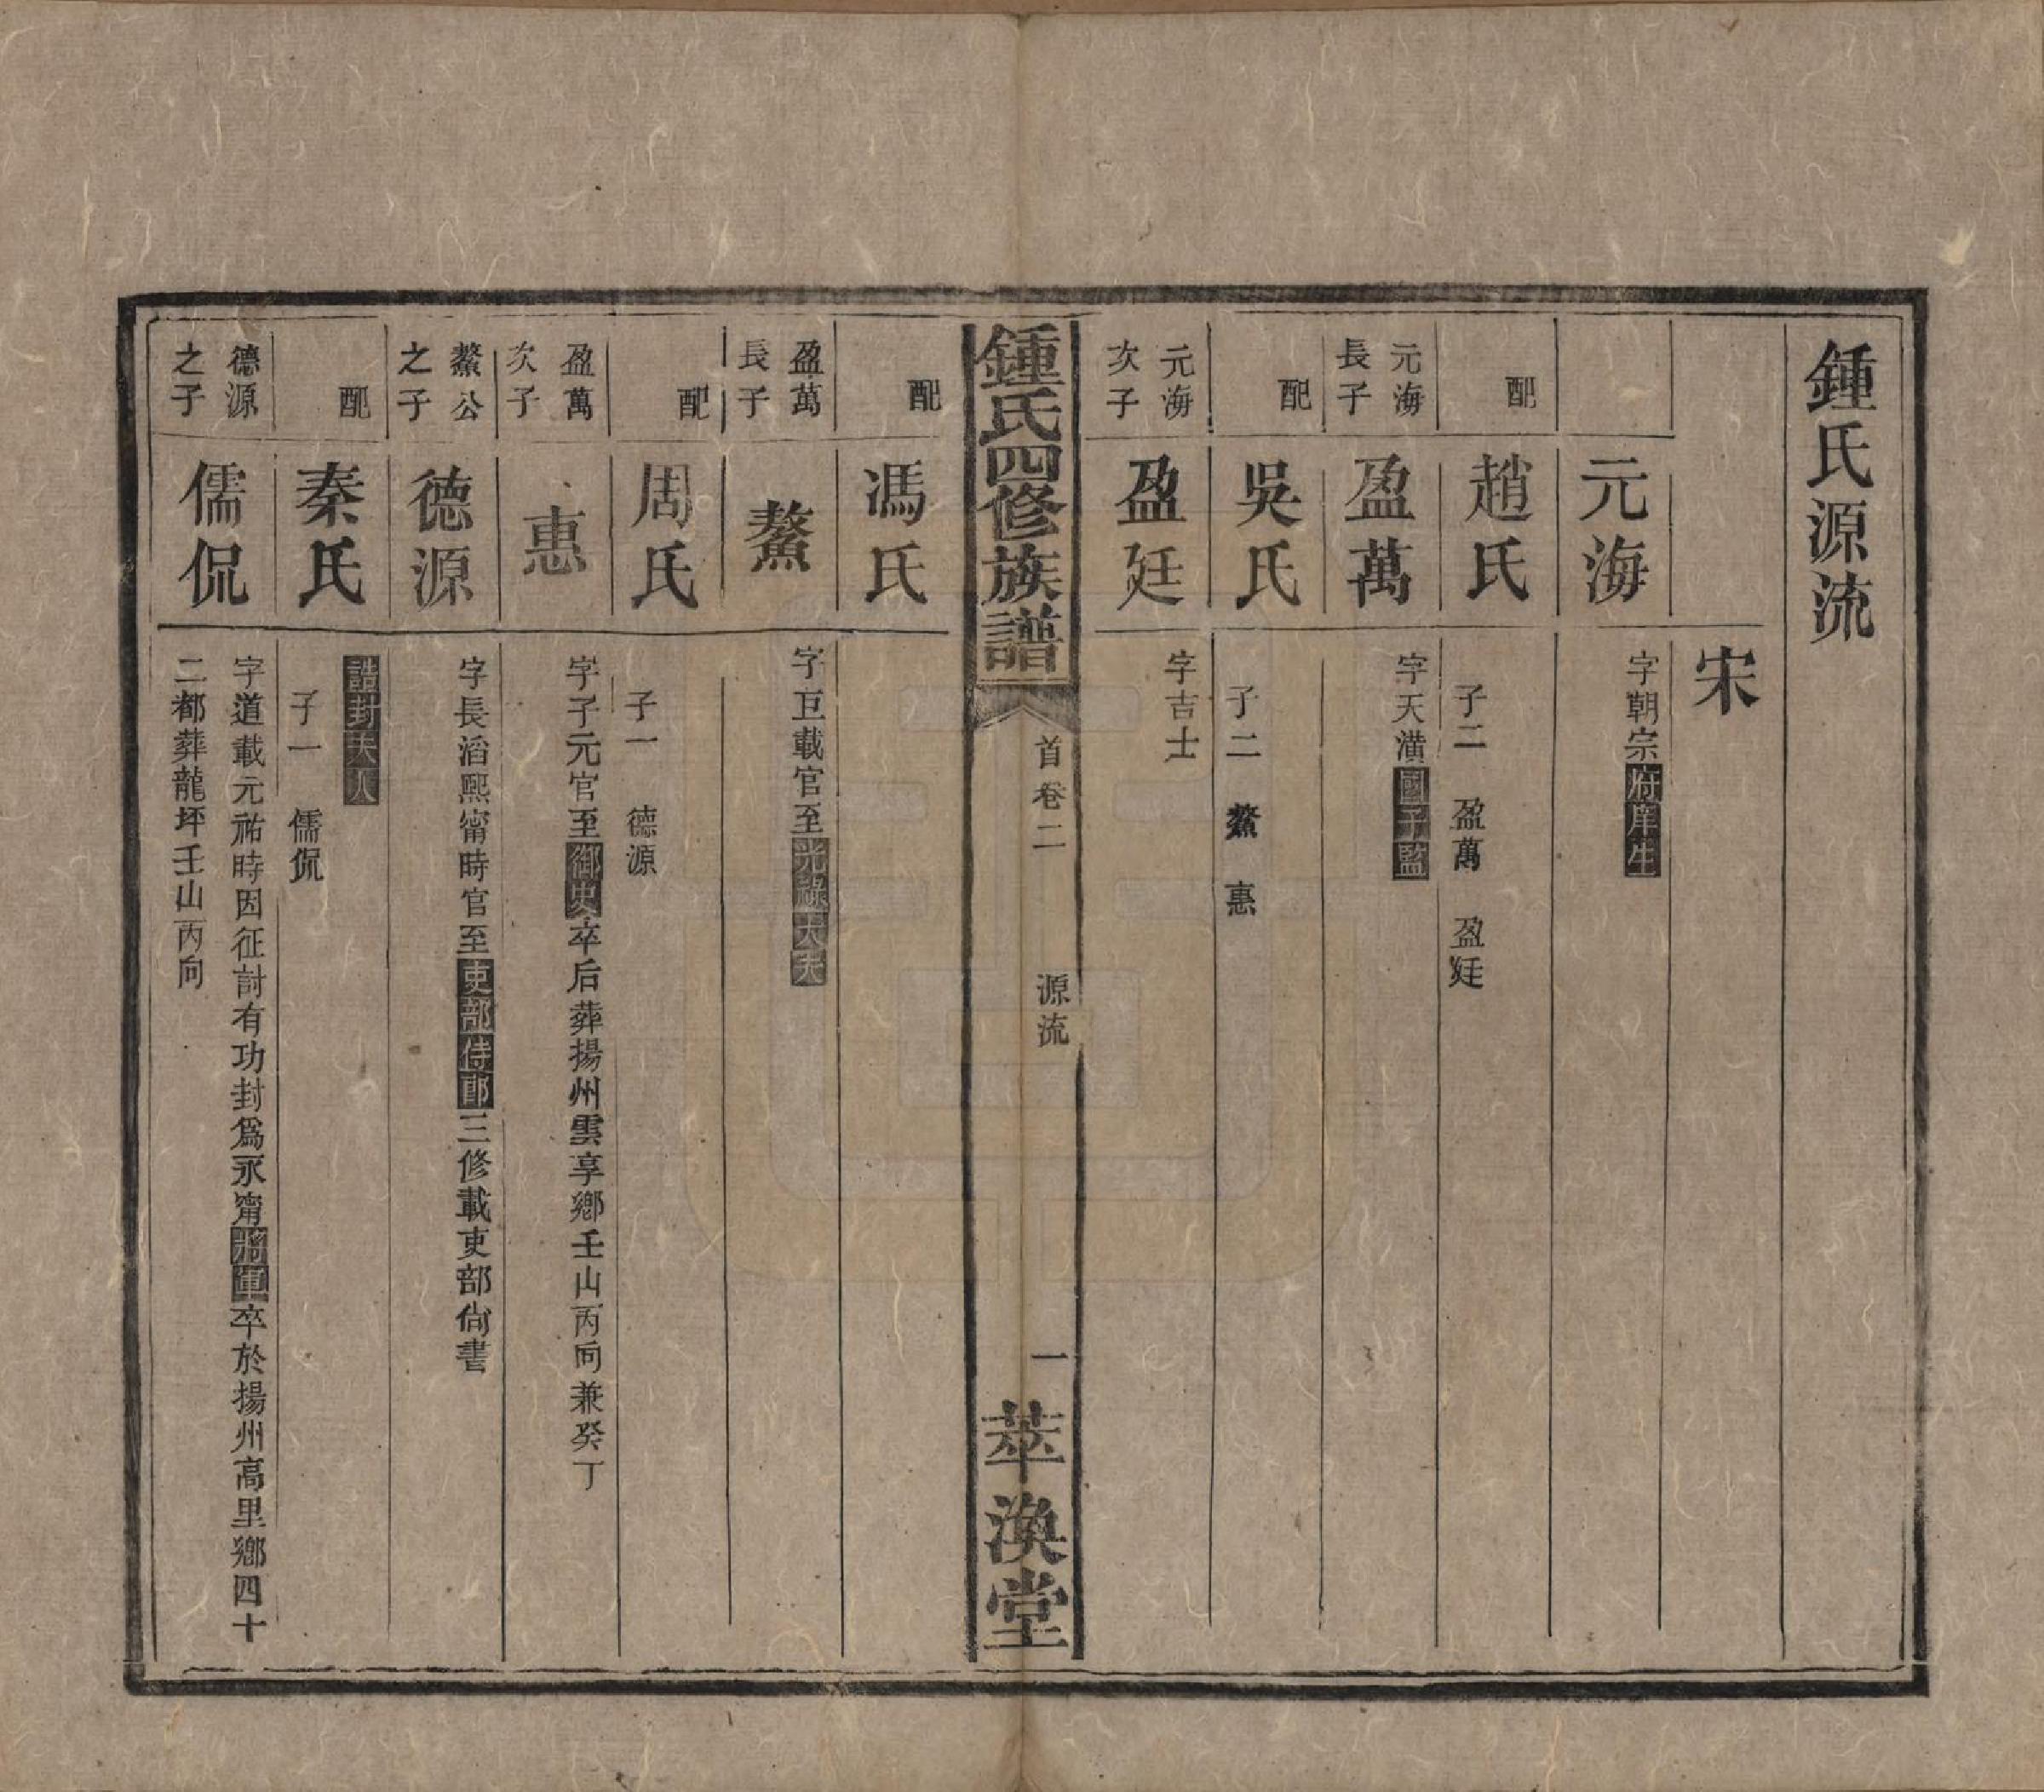 鍾氏源流
宋
元海
字朝宗府庠生
配
趙氏
子二　盈萬　盈廷
元海
長子
盈萬
字天潢國子監
配
吳氏
子二　鰲　惠
元海
次子
盈廷
字吉士
鍾氏四修族譜
首卷二
源流
一
萃渙堂
配
馮氏
盈萬
長子
鰲
字巨載官至光祿大夫
配
周氏
子一　德源
盈萬
次子
惠
字子元官至御史卒后葬揚州雲享鄉壬山丙向兼癸丁
鰲公
之子
德源
字長滔熙甯時官至吏部侍郎三修載吏部尚書
配
秦氏
誥封夫人
子一　儒侃
德源
之子
儒侃
字道載元祐時因征討有功封爲永甯將軍卒於揚州高里鄉四十
二都葬龍坪壬山丙向